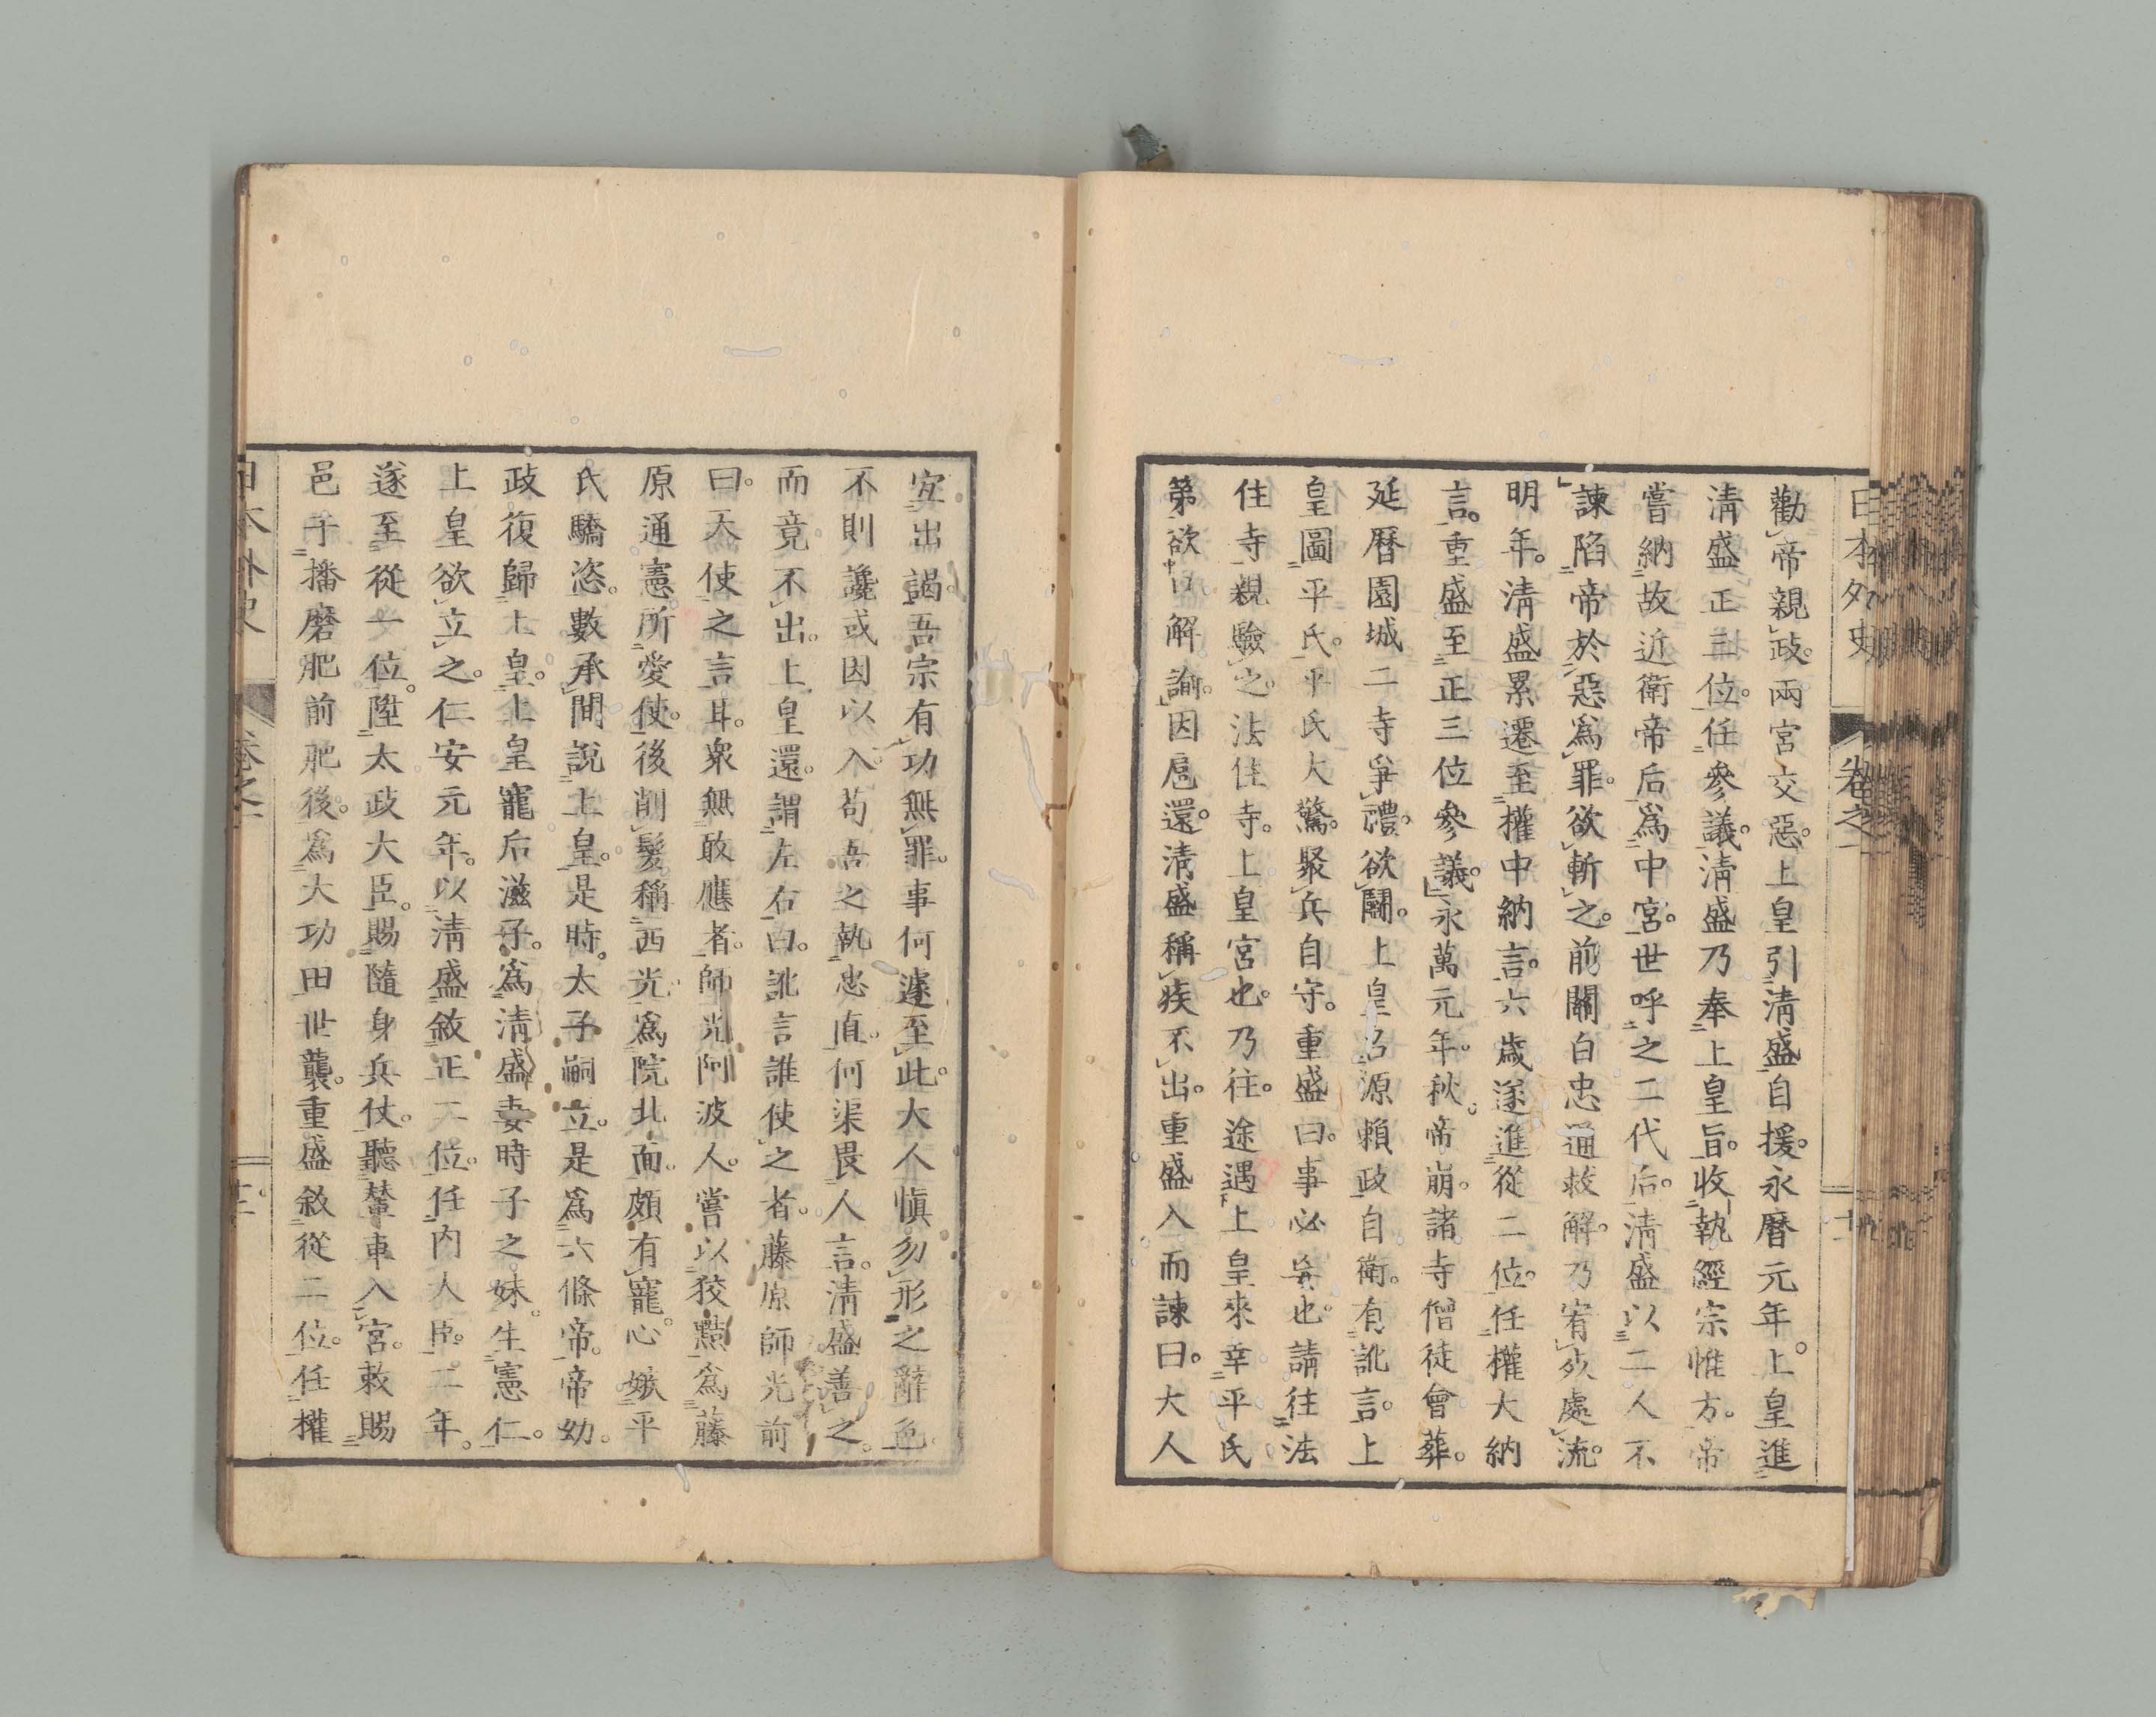 日本外史
卷之一
十一
勸帝親政。兩宮交惡。上皇引淸盛自援。永曆元年。上皇進
淸盛正三位。任參議。淸盛乃奉上皇旨。收執經宗惟方。帝
嘗納故近衞帝后爲中宮。世呼之二代后。淸盛以二人不
諫陷帝於惡爲罪。欲斬之。前關白忠通救解。乃宥死處流。
明年。淸盛累遷至權中納言。六歲遂進從二位。任權大納
言。重盛至正三位參議。永萬元年。秋。帝崩。諸寺僧徒會葬。
延曆園城二寺爭禮。欲鬪。上皇召源賴政自衞。有訛言。上
皇圖平氏。平氏大驚。聚兵自守。重盛曰。事必無也。請往法
住寺親驗之。法住寺。上皇宮也。乃往。途遇上皇來幸平氏
第欲口解諭。因扈還。淸盛稱疾不出。重盛入而諫曰。大人
宜出謁。吾宗有功無罪。事何遽至此。大人愼勿形之辭色
不則讒或因以入。苟吾之執忠直。何渠畏人言。淸盛善之。
而竟不出。上皇還。謂左右曰。訛言誰使之者。藤原師光前
曰。天使之言耳。衆無敢應者。師光阿波人。嘗以狡黠爲藤
原通憲所愛使。後削髮稱西光。爲院北面。頗有寵。心嫉平
氏驕恣。數承間說上皇。是時。太子嗣立。是爲六條帝。帝幼。
政復歸上皇。上皇寵后滋子。爲淸盛妻時子之妹。生憲仁。
上皇欲立之。仁安元年。以淸盛敘正二位。任內大臣。二年。
遂至從一位。陞太政大臣。賜隨身兵仗。聽輦車入宮。敕賜
邑于播磨肥前肥後。爲大功田世襲。重盛敘從二位。任權
日本外史
卷之一
十二